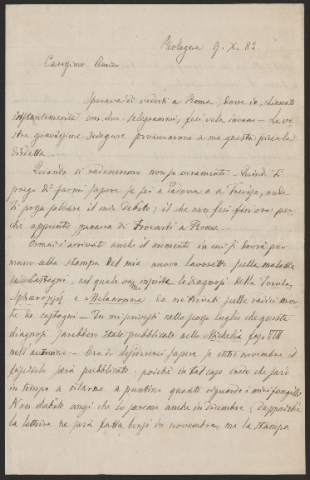 Bologna 9. X. 82
Carissimo Amico
Sperava di vederti a Roma, dove io, chiamato
istantemente con due telegrammi, feci vela invano - Le vo
stre gravissime sciagure procurarono a me questa piccola
disdetta -
Quando si raduneranno non so veramente - Quindi ti
prego di farmi sapere se sei a Padova o a Treviso, onde
ti possa saldare il mio debito; il che non feci fin ora per
che appunto sperava di trovarti a Roma.
Ormai è arrivato anche il momento in cui si dovrà por
mano alla stampa del mio nuovo lavoretto sulla malattia
dei Castagni, nel quale vanno inserite le diagnosi della Torula,
Sphaeropsis e Melanomma da te trovati sulle radici mor
te de' castagni - Tu mi scrivesti nello scorso luglio che queste
diagnosi sarebbero state pubblicate nella Michelia fasc. VIII
nell'autunno - Ora di desidererei sapere se entro novembre il
fascicolo sarà pubblicato, poichè in tal caso credo che sarò
in tempo a citarne a puntino quanto riguarda i miei funghilli
Non dubito anzi che lo saremo anche in dicembre, dappoichè
la lettura ne sarà fatta bensì in novembre, ma la stampa